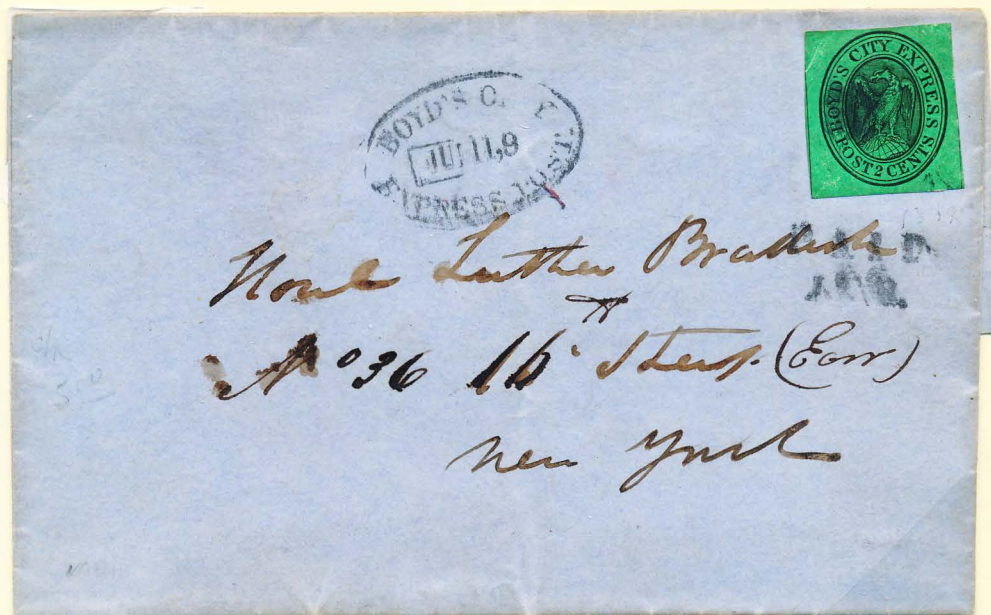 BOYD'S CITY EXPRESS
POST 2 CENTS
BOYD'S C Y
EXPRESS POST.
JU 11,8
PAID
J.T.B.
Honl Luther Bradish
No 36 16 Street (East)
New York